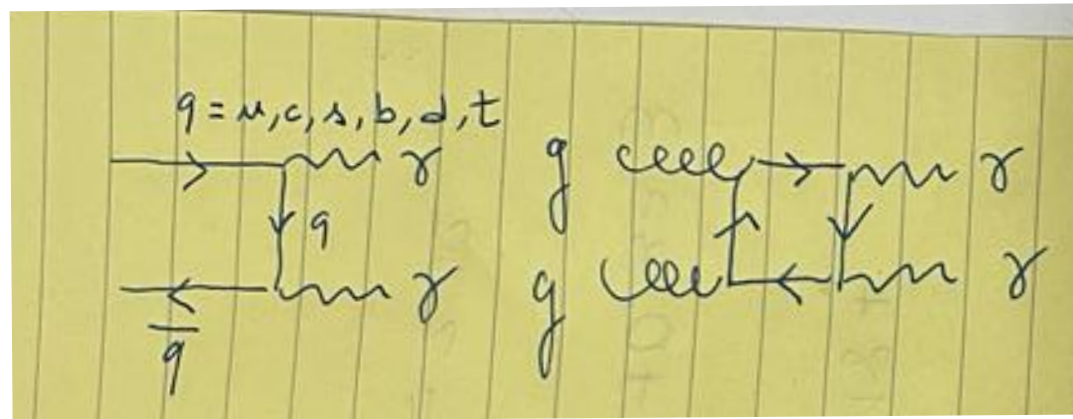 q = u, c, s, b, d, t
γ g γ
q
γ g γ
q̅